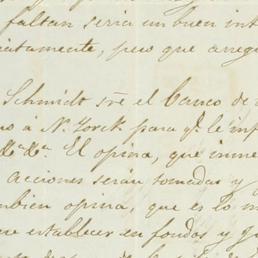 faltan seria un buen int
iatamente, pero que arreg
Schmidt sre el Banco de
no á N. Yorck para q. le inf
El opina, que inme
acciones serán tomadas y
mbien opina, que es lo m
ue establecer en fondos y q